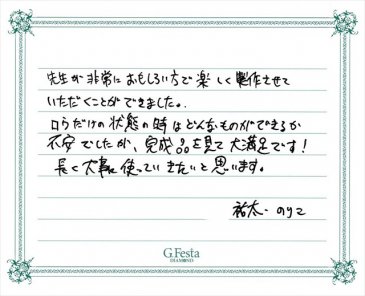 先生が非常におもしろい方で楽しく製作させて
いただくことができました。
ロウだけの状態の時はどんなものができるか
不安でしたが、完成品を見て大満足です！
長く大事に使っていきたいと思います。
祐太・のりこ
G.Festa
DIAMOND